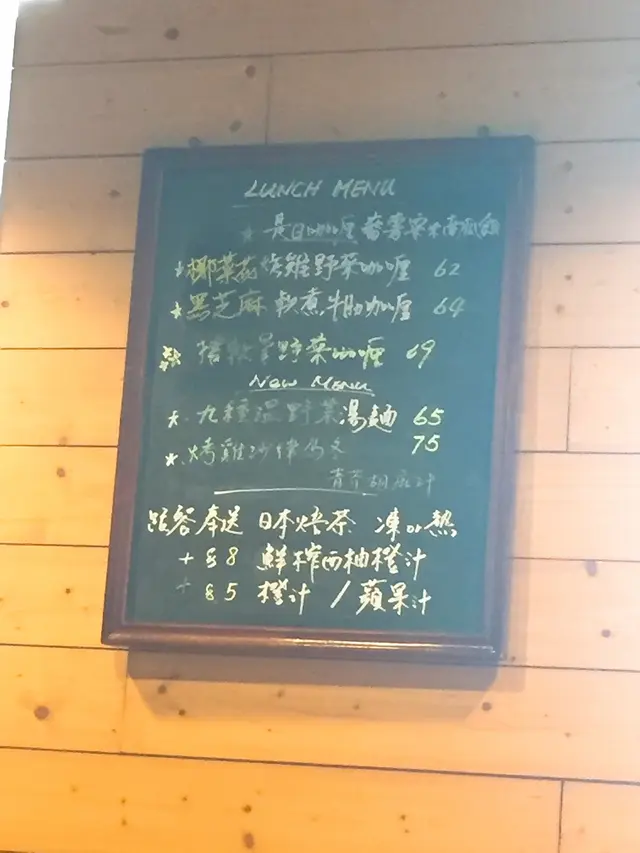 LUNCH MENU
★ 是日咖喱
★ 椰菜花烤雞野菜咖喱 62
★ 黑芝麻軟煮牛肋咖喱 64
野菜咖喱 69
NEW MENU
★ 九種溫野菜湯麵 65
★ 烤雞沙律烏冬 75
青芥胡麻汁
跟餐奉送 日本焙茶 凍or熱
+ $8 鮮榨西柚橙汁
+ $5 橙汁 / 蘋果汁